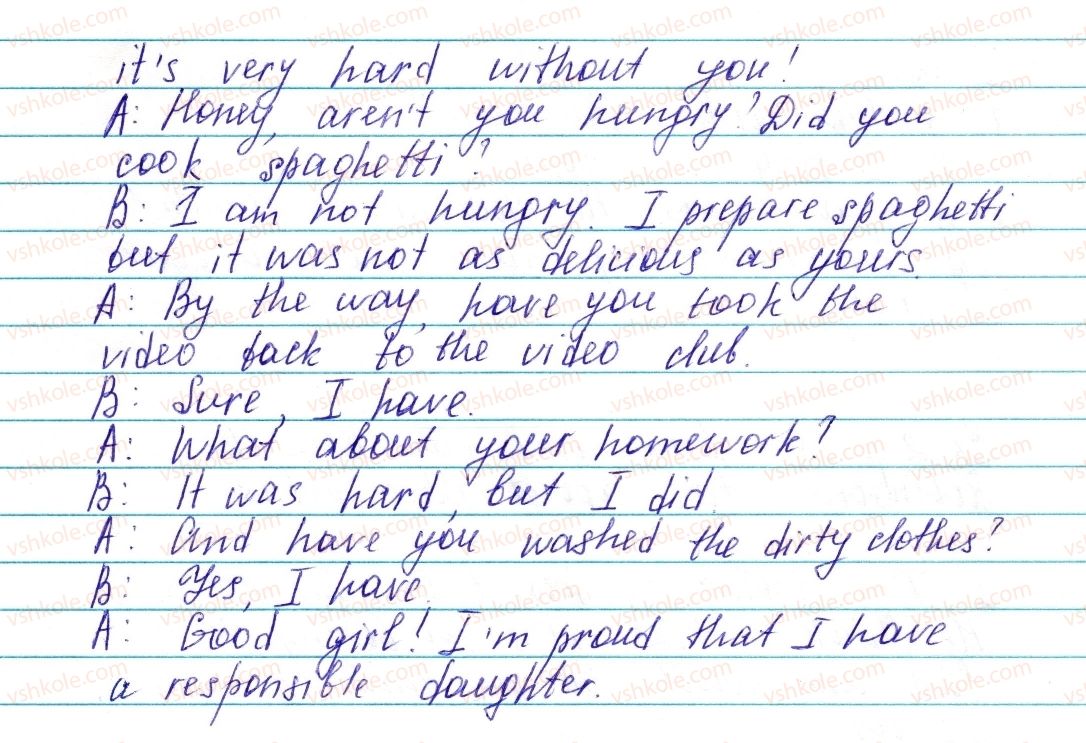 it's very hard without you!
A: Honey, aren't you hungry? Did you
cook spaghetti?
B: I am not hungry. I prepare spaghetti
but it was not as delicious as yours.
A: By the way, have you took the
video back to the video club.
B: Sure, I have.
A: What about your homework?
B: It was hard, but I did.
A: And have you washed the dirty clothes?
B: Yes, I have.
A: Good girl! I'm proud that I have
a responsible daughter.